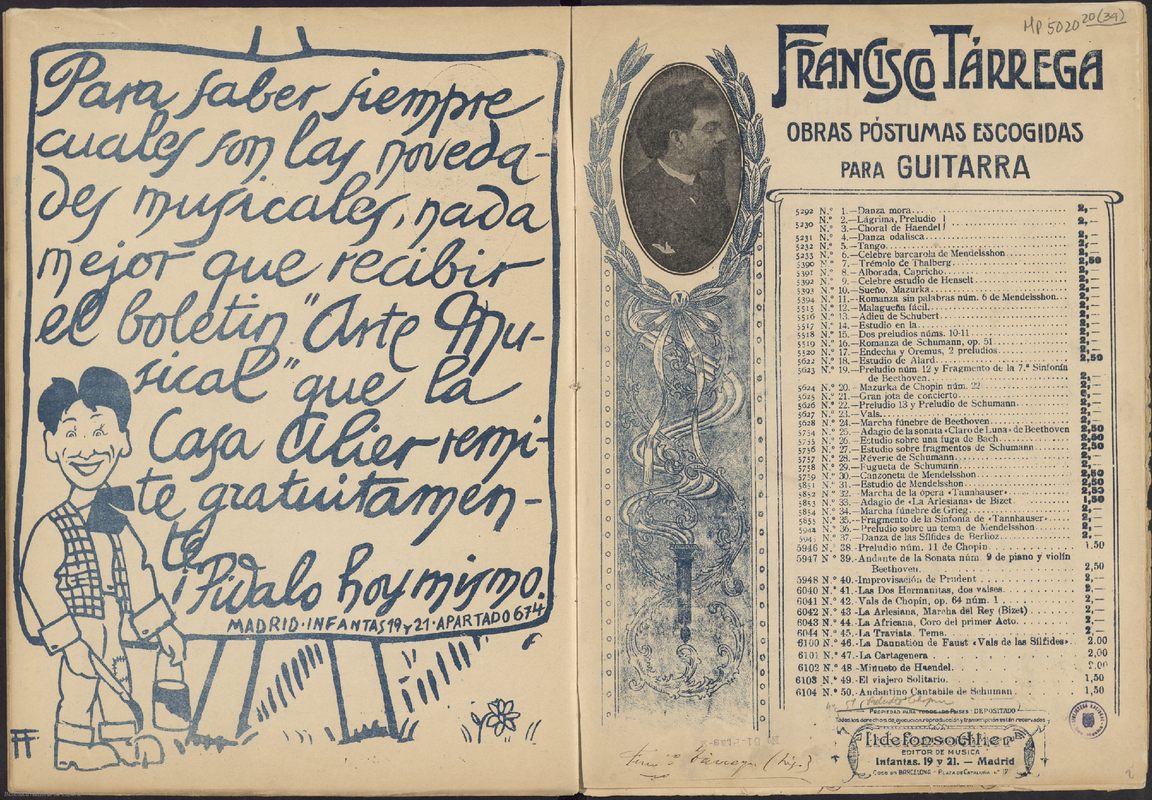 Para saber siempre
cuales son las noveda-
des musicales, nada
mejor que recibir
el boletin "Arte Mu-
sical" que la
Casa Alier remi-
te gratuitamen-
te.
¡Pidalo hoy mismo.
MADRID·INFANTAS 19 y 21·APARTADO 674
MP 5020 20(34)
FRANCISCO TÁRREGA
OBRAS PÓSTUMAS ESCOGIDAS
PARA GUITARRA
5292 N.º 1.—Danza mora 2,—
5230 N.º 2.—Lágrima, Preludio
N.º 3.—Choral de Haendel 2,—
5231 N.º 4.—Danza odalisca 2,—
5232 N.º 5.—Tango 2,—
5233 N.º 6.—Célebre barcarola de Mendelsshon 2,—
5390 N.º 7.—Trémolo de Thalberg 2,50
5391 N.º 8.—Alborada, Capricho 2,—
5392 N.º 9.—Celebre estudio de Henselt 2,—
5393 N.º 10.—Sueño, Mazurka 2,—
5394 N.º 11.—Romanza sin palabras núm. 6 de Mendelsshon 2,—
5515 N.º 12.—Malagueña fácil 2,—
5516 N.º 13.—Adieu de Schubert 2,—
5517 N.º 14.—Estudio en la 2,—
5518 N.º 15.—Dos preludios núms. 10-11 2,—
5519 N.º 16.—Romanza de Schumann, op. 51 2,—
5520 N.º 17.—Endecha y Oremus, 2 preludios 2,—
5622 N.º 18.—Estudio de Alard 2,50
5623 N.º 19.—Preludio núm. 12 y Fragmento de la 7.ª Sinfonía
de Beethoven 2,—
5624 N.º 20.—Mazurka de Chopin núm. 22 2,—
5625 N.º 21.—Gran jota de concierto 6,—
5626 N.º 22.—Preludio 13 y Preludio de Schumann 2,—
5627 N.º 23.—Vals 2,—
5628 N.º 24.—Marcha fúnebre de Beethoven 2,—
5734 N.º 25.—Adagio de la sonata «Claro de Luna» de Beethoven 2,50
5735 N.º 26.—Estudio sobre una fuga de Bach 2,50
5736 N.º 27.—Estudio sobre fragmentos de Schumann 2,50
5737 N.º 28.—Réverie de Schumann 2,—
5738 N.º 29.—Fugueta de Schumann 2,—
5739 N.º 30.—Canzoneta de Mendelsshon 2,50
5851 N.º 31.—Estudio de Mendelsshon 2,50
5852 N.º 32.—Marcha de la ópera «Tannhauser» 2,50
5853 N.º 33.—Adagio de «La Arlesiana» de Bizet 1,50
5854 N.º 34.—Marcha fúnebre de Grieg 2,—
5855 N.º 35.—Fragmento de la Sinfonía de «Tannhauser» 2,—
5944 N.º 36.—Preludio sobre un tema de Mendelsshon 2,—
5945 N.º 37.—Danza de las Sílfides de Berlioz 2,—
5946 N.º 38.-Preludio núm. 11 de Chopin 1,50
5947 N.º 39.-Andante de la Sonata núm. 9 de piano y violín
Beethoven 2,50
5948 N.º 40.-Improvisación de Prudent 2,—
6040 N.º 41.-Las Dos Hermanitas, dos valses 2,—
6041 N.º 42.-Vals de Chopin, op. 64 núm. 1 2,—
6042 N.º 43.-La Arlesiana, Marcha del Rey (Bizet) 2,—
6043 N.º 44.-La Africana, Coro del primer Acto 2,—
6044 N.º 45.-La Traviata, Tema 2,—
6100 N.º 46.-La Dannation de Faust «Vals de las Silfides» 2.00
6101 N.º 47.-La Cartagenera 2,00
6102 N.º 48.-Minueto de Haendel 2,00
6103 N.º 49.-El viajero Solitario 1,50
6104 N.º 50.-Andantino Cantabile de Schuman 1,50
PROPIEDAD PARA TODOS LOS PAISES · DEPOSITADO
Todos los derechos de ejecucion, reproducción y transcripción están reservados
Ildefonso Alier
EDITOR DE MUSICA
Infantas, 19 y 21. — Madrid
CASA EN BARCELONA - PLAZA DE CATALUÑA, N.º 17